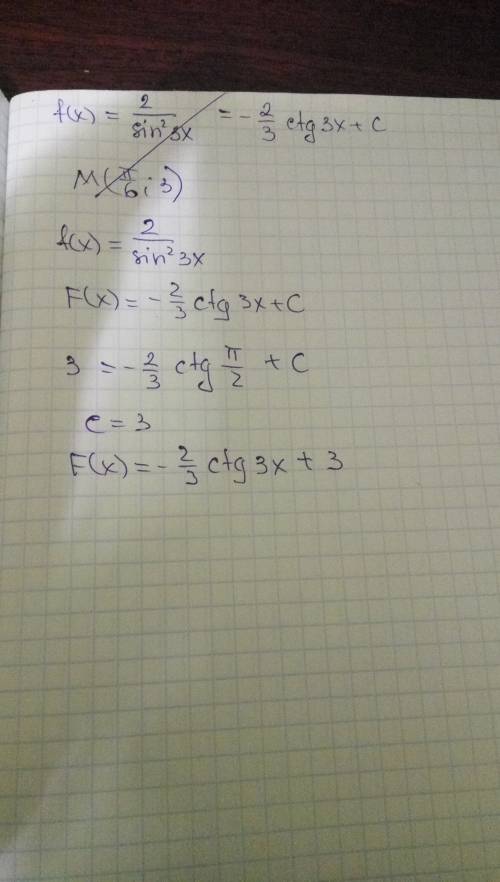 f(x) = 2/sin²3x = - 2/3 ctg 3x + C
M(π/6; 3)
f(x) = 2/sin²3x
F(x) = - 2/3 ctg 3x + C
3 = - 2/3 ctg π/2 + C
c = 3
F(x) = - 2/3 ctg 3x + 3